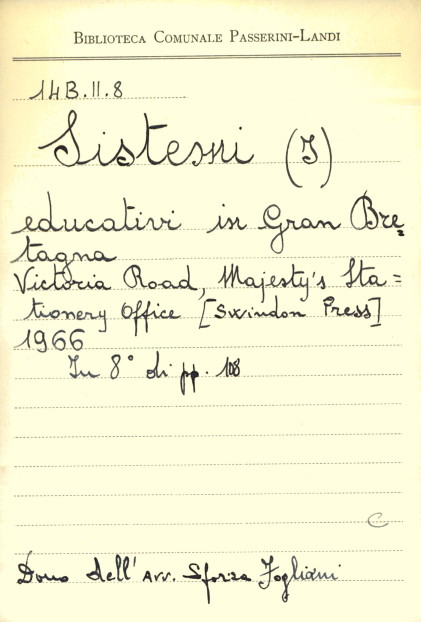 BIBLIOTECA COMUNALE PASSERINI-LANDI
14B.II.8
Sistemi (I)
educativi in Gran Bre=
tagna
Victoria Road, Majesty's Sta=
tionery Office [Swindon Press]
1966
In 8° di pp. 108
C
Dono dell'Avv. Sforza Fogliani